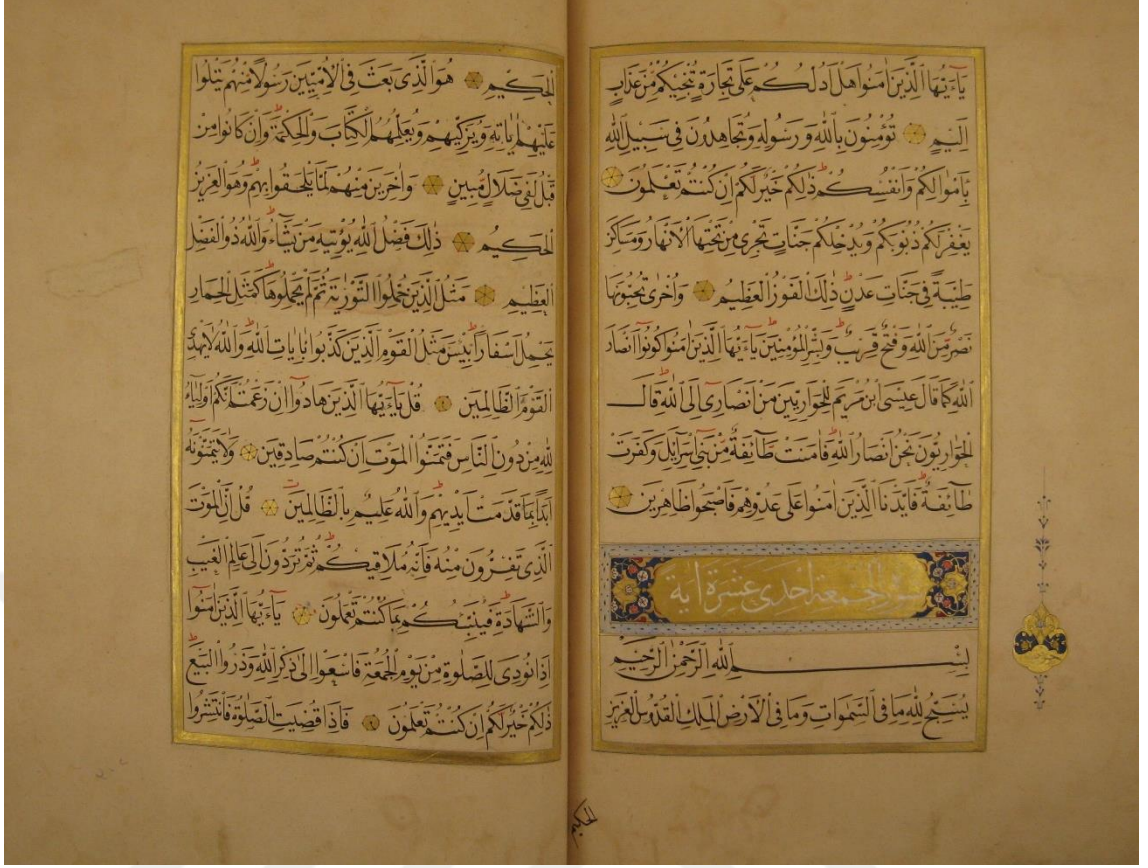 يَاءَيُّهَا الَّذِينَ اٰمَنُوا هَلْ اَدُلُّكُمْ عَلٰى تِجَارَةٍ تُنْجِيكُمْ مِنْ عَذَابٍ
اَلِيمٍ تُؤْمِنُونَ بِاللّٰهِ وَرَسُولِهِ وَتُجَاهِدُونَ فِى سَبِيلِ اللّٰهِ
بِاَمْوَالِكُمْ وَاَنْفُسِكُمْ ذٰلِكُمْ خَيْرٌ لَكُمْ اِنْ كُنْتُمْ تَعْلَمُونَ
يَغْفِرْ لَكُمْ ذُنُوبَكُمْ وَيُدْخِلْكُمْ جَنَّاتٍ تَجْرِى مِنْ تَحْتِهَا الْاَنْهَارُ وَمَسَاكِنَ
طَيِّبَةً فِى جَنَّاتِ عَدْنٍ ذٰلِكَ الْفَوْزُ الْعَظِيمُ وَاُخْرٰى تُحِبُّونَهَا
نَصْرٌ مِنَ اللّٰهِ وَفَتْحٌ قَرِيبٌ وَبَشِّرِ الْمُؤْمِنِينَ يَاءَيُّهَا الَّذِينَ اٰمَنُوا كُونُوا اَنْصَارَ
اللّٰهِ كَمَا قَالَ عِيسَى ابْنُ مَرْيَمَ لِلْحَوَارِيِّينَ مَنْ اَنْصَارِى اِلَى اللّٰهِ قَالَ
الْحَوَارِيُّونَ نَحْنُ اَنْصَارُ اللّٰهِ فَاٰمَنَتْ طَائِفَةٌ مِنْ بَنِى اِسْرَائِلَ وَكَفَرَتْ
طَائِفَةٌ فَاَيَّدْنَا الَّذِينَ اٰمَنُوا عَلٰى عَدُوِّهِمْ فَاَصْبَحُوا ظَاهِرِينَ
سورة الجمعة احدى عشرة اية
بِسْمِ اللّٰهِ الرَّحْمٰنِ الرَّحِيمِ
يُسَبِّحُ لِلّٰهِ مَا فِى السَّمٰوَاتِ وَمَا فِى الْاَرْضِ الْمَلِكِ الْقُدُّوسِ الْعَزِيزِ
الحكيم
الْحَكِيمِ هُوَ الَّذِى بَعَثَ فِى الْاُمِّيِّينَ رَسُولًا مِنْهُمْ يَتْلُوا
عَلَيْهِمْ اٰيَاتِهِ وَيُزَكِّيهِمْ وَيُعَلِّمُهُمُ الْكِتَابَ وَالْحِكْمَةَ وَاِنْ كَانُوا مِنْ
قَبْلُ لَفِى ضَلَالٍ مُبِينٍ وَاٰخَرِينَ مِنْهُمْ لَمَّا يَلْحَقُوا بِهِمْ وَهُوَ الْعَزِيزُ
الْحَكِيمُ ذٰلِكَ فَضْلُ اللّٰهِ يُؤْتِيهِ مَنْ يَشَاءُ وَاللّٰهُ ذُو الْفَضْلِ
الْعَظِيمِ مَثَلُ الَّذِينَ حُمِّلُوا التَّوْرٰيةَ ثُمَّ لَمْ يَحْمِلُوهَا كَمَثَلِ الْحِمَارِ
يَحْمِلُ اَسْفَارًا بِئْسَ مَثَلُ الْقَوْمِ الَّذِينَ كَذَّبُوا بِاٰيَاتِ اللّٰهِ وَاللّٰهُ لَا يَهْدِى
الْقَوْمَ الظَّالِمِينَ قُلْ يَاءَيُّهَا الَّذِينَ هَادُوا اِنْ زَعَمْتُمْ اَنَّكُمْ اَوْلِيَاءُ
لِلّٰهِ مِنْ دُونِ النَّاسِ فَتَمَنَّوُا الْمَوْتَ اِنْ كُنْتُمْ صَادِقِينَ وَلَا يَتَمَنَّوْنَهُ
اَبَدًا بِمَا قَدَّمَتْ اَيْدِيهِمْ وَاللّٰهُ عَلِيمٌ بِالظَّالِمِينَ قُلْ اِنَّ الْمَوْتَ
الَّذِى تَفِرُّونَ مِنْهُ فَاِنَّهُ مُلَاقِيكُمْ ثُمَّ تُرَدُّونَ اِلٰى عَالِمِ الْغَيْبِ
وَالشَّهَادَةِ فَيُنَبِّئُكُمْ بِمَا كُنْتُمْ تَعْمَلُونَ يَاءَيُّهَا الَّذِينَ اٰمَنُوا
اِذَا نُودِىَ لِلصَّلٰوةِ مِنْ يَوْمِ الْجُمُعَةِ فَاسْعَوْا اِلٰى ذِكْرِ اللّٰهِ وَذَرُوا الْبَيْعَ
ذٰلِكُمْ خَيْرٌ لَكُمْ اِنْ كُنْتُمْ تَعْلَمُونَ فَاِذَا قُضِيَتِ الصَّلٰوةُ فَانْتَشِرُوا